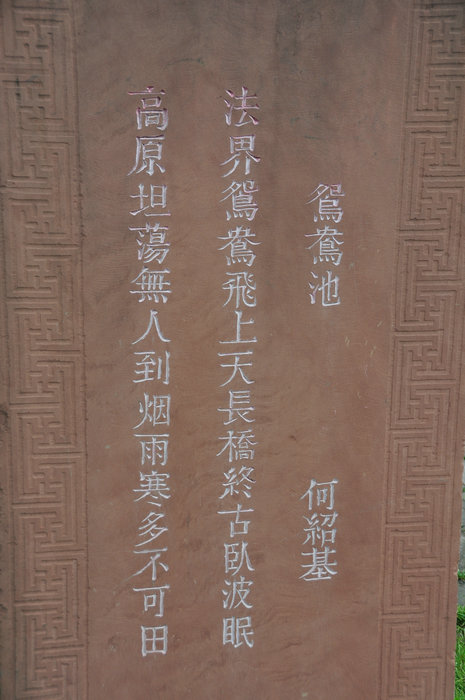 鴛鴦池
何紹基
法界鴛鴦飛上天長橋終古臥波眠
高原坦蕩無人到烟雨寒多不可田